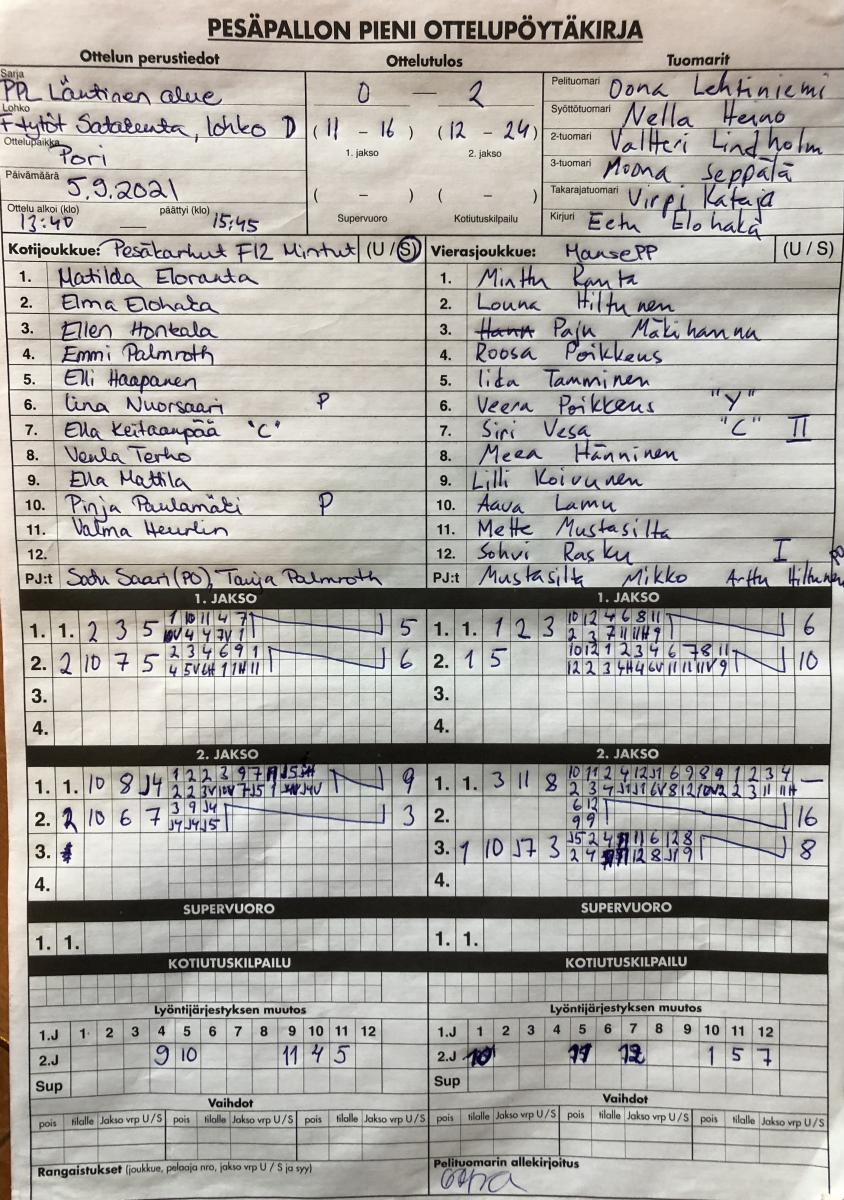 PESÄPALLON PIENI OTTELUPÖYTÄKIRJA
Ottelun perustiedot Ottelutulos Tuomarit
Sarja
PPL Läntinen alue
Lohko
F-tytöt Satakunta, lohko D
Ottelupaikka
Pori
Päivämäärä
5.9.2021
Ottelu alkoi (klo) päättyi (klo)
13:40 — 15:45
0 — 2
(11 - 16) (12 - 24)
1. jakso 2. jakso
( - ) ( - )
Supervuoro Kotiutuskilpailu
Pelituomari Oona Lehtiniemi
Syöttötuomari Nella Heino
2-tuomari Valtteri Lindholm
3-tuomari Moona Seppälä
Takarajatuomari Virpi Kataja
Kirjuri Eetu Elohaka
Kotijoukkue: Pesäkarhut F12 Mintut (U / S)
1. Matilda Eloranta
2. Elma Elohaka
3. Ellen Honkala
4. Emmi Palmroth
5. Elli Haapanen
6. Iina Nuorsaari P
7. Ella Keitaanpää "C"
8. Venla Terho
9. Ella Mattila
10. Pinja Paulamäki P
11. Valma Heurlin
12.
PJ:t Satu Saari (PO), Tanja Palmroth
Vierasjoukkue: MansePP (U / S)
1. Minttu Ranta
2. Louna Hiltunen
3. Paju Mäkihannu
4. Roosa Poikkeus
5. Iida Tamminen
6. Veera Poikkeus "Y"
7. Siri Vesa "C" II
8. Meea Hänninen
9. Lilli Koivunen
10. Aava Lamu
11. Mette Mustasilta
12. Sohvi Rasku I
PJ:t Mustasilta Mikko Arttu Hiltunen
1. JAKSO
1. 1. 2 3 5 1 10 11 4 7 5
10V 4 4 7V 1
2. 2 10 7 5 2 3 4 6 9 1 6
4 5V 6H 1 1H 11
3.
4.
1. JAKSO
1. 1. 1 2 3 10 12 4 6 8 11 6
2 3 7 11 11H 9
2. 1 5 10 12 1 2 3 4 6 7 8 11 10
12 2 3 4H 4 6V 11 11 11V 9
3.
4.
2. JAKSO
1. 1. 10 8 J4 1 2 2 3 9 7 9
2. 2 10 6 7 3 9 J4 3
J4 J4 J5
3.
4.
2. JAKSO
1. 1. 3 11 8 10 11 2 4 12 J1 6 9 8 9 1 2 3 4 —
2 3 4 J1 J1 6V 8 12 10V 2 2 3 11 11H
2. 6 12 16
9 9
3. 1 10 J7 3 J5 2 4 11 6 12 8 8
2 4 12 8 J1 9
4.
SUPERVUORO
1. 1.
SUPERVUORO
1. 1.
KOTIUTUSKILPAILU
KOTIUTUSKILPAILU
Lyöntijärjestyksen muutos
1.J 1 2 3 4 5 6 7 8 9 10 11 12
2.J 9 10 11 4 5
Sup
Lyöntijärjestyksen muutos
1.J 1 2 3 4 5 6 7 8 9 10 11 12
2.J 1 5 7
Sup
Vaihdot
pois tilalle Jakso vrp U / S pois tilalle Jakso vrp U / S pois tilalle Jakso vrp U / S
Vaihdot
pois tilalle Jakso vrp U / S pois tilalle Jakso vrp U / S pois tilalle Jakso vrp U / S
Rangaistukset (joukkue, pelaaja nro, jakso vrp U / S ja syy)
Pelituomarin allekirjoitus